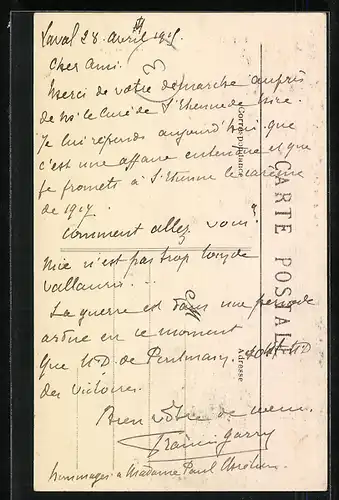 Laval 28 Avril 191
Cher Ami.
Merci de votre démarche auprès
de Mr le Curé de St Etienne de Nice.
Je lui réponds aujourd'hui que
c'est une affaire entendue et que
je promets à St Etienne le carême
de 1917.
Comment allez vous?
Nice n'est pas trop loin de
Vallauris ...
La guerre est dans une période
ardue en ce moment
Que N.D. de Pontmain, N.D
des Victoires.
Bien vôtre de
hommages à Madame Paul
CARTE POSTALE
Correspondance
Adresse